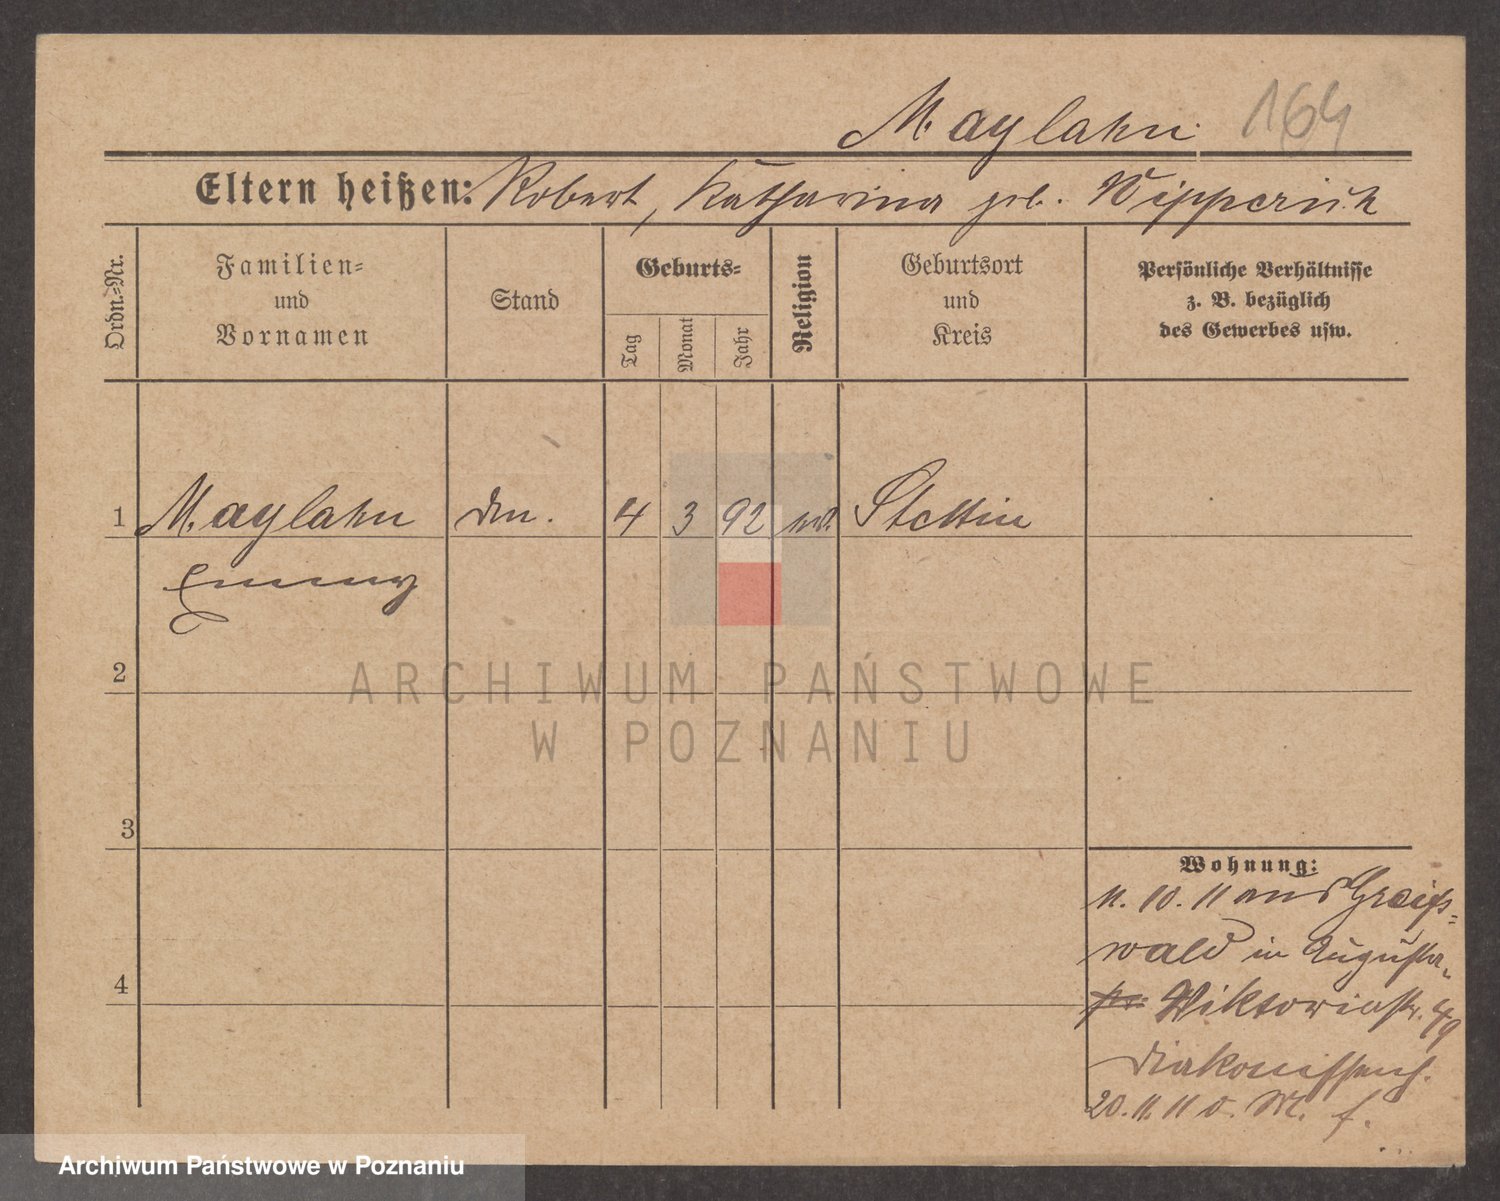 Maylahn 164
Eltern heißen: Robert, Katharina geb. Wipperich
Ordn.-Nr.
Familien-
und
Vornamen
Stand
Geburts-
Tag
Monat
Jahr
Religion
Geburtsort
und
Kreis
Persönliche Verhältnisse
z. B. bezüglich
des Gewerbes usw.
1 Maylahn 4 3 92 Stettin
Emmy
2
3
4
Wohnung:
11. 10. 11 aus Greifs-
wald in Augusta-
Viktoriastr. 49
Diakonissenh.
20. 11. 11
ARCHIWUM PAŃSTWOWE
W POZNANIU
Archiwum Państwowe w Poznaniu